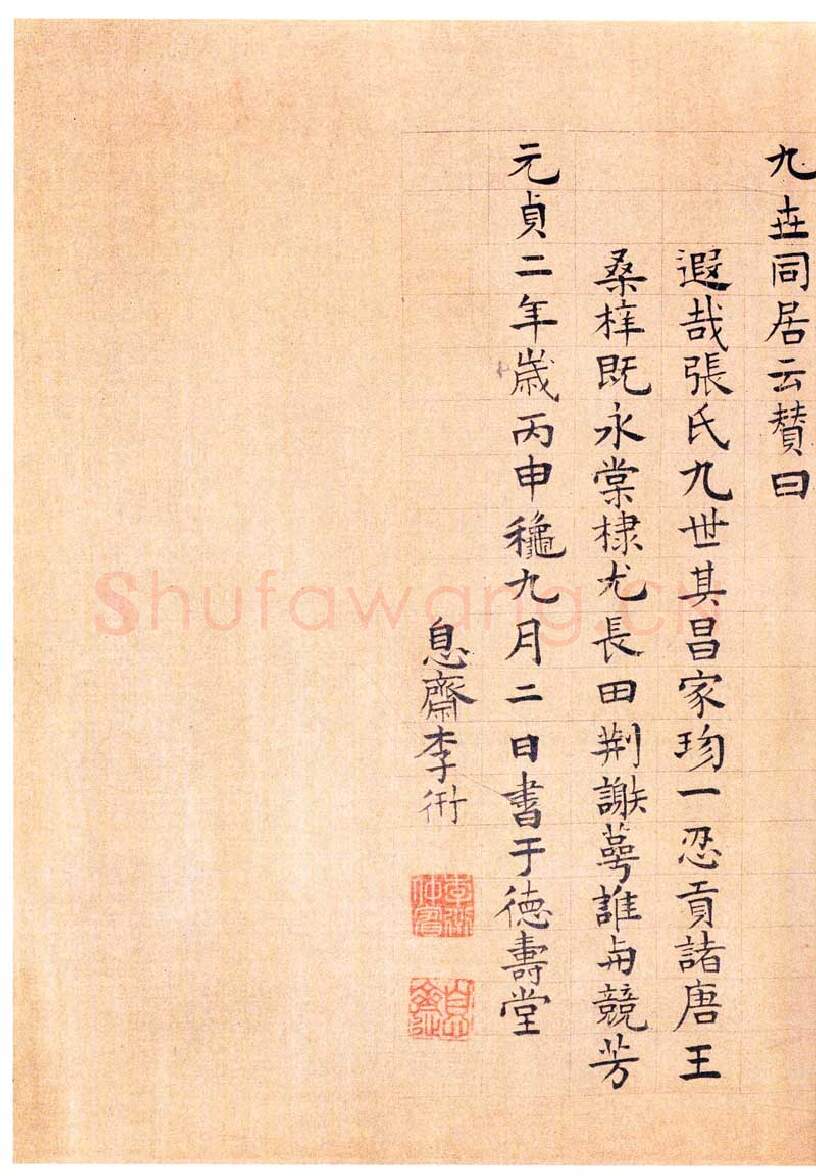 九卋同居云賛曰
遐哉張氏九世其昌家珎一忍貢諸唐王
桑梓既永棠棣尤長田荆謝萼誰与競芳
元貞二年歳丙申龝九月二日書于德壽堂
息齋李衎
李衎仲賓
息齋
Shufawang.CN